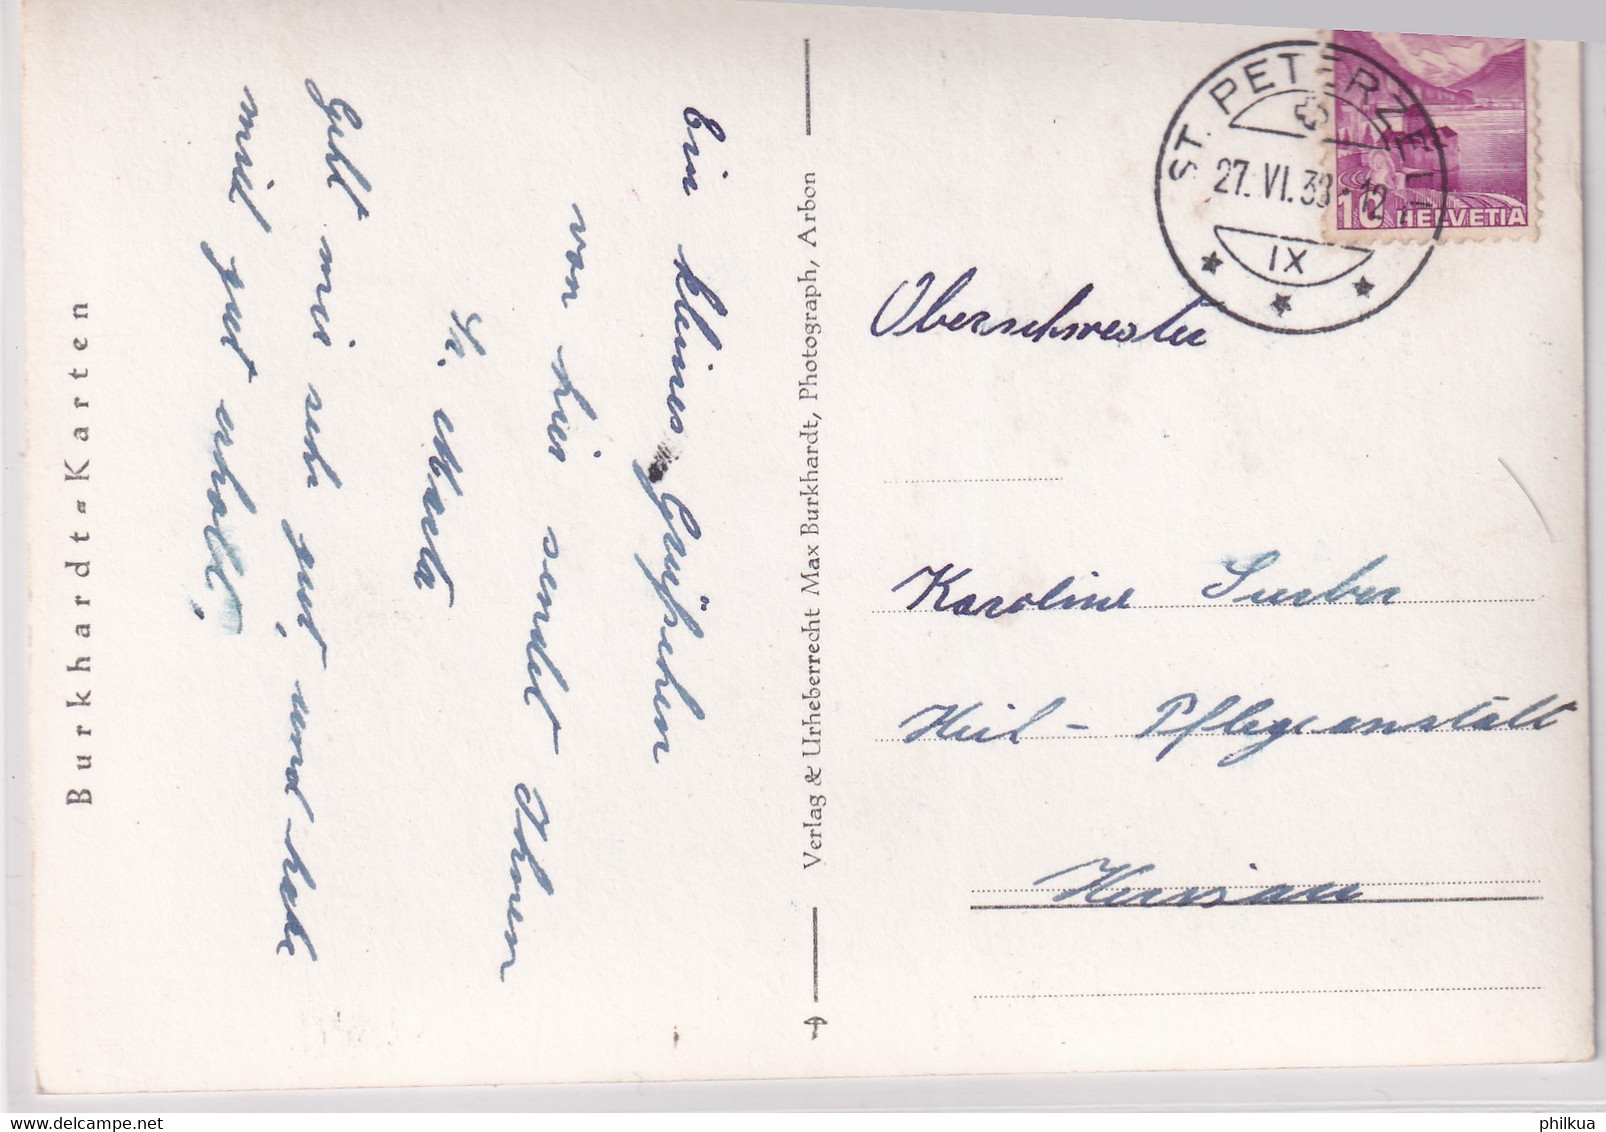 Burkhardt-Karten
Ein kleines Grüsschen
von hier sendet Ihnen
Geht mir sehr gut, und habe
mich gut erholt.
Verlag & Urheberrecht Max Burkhardt, Photograph, Arbon
ST. PETERZELL
27. VI. 39 - 12
IX
10 HELVETIA
Oberschwester
Karoline Surber
Heil - Pflegeanstalt
Herisau
philkua